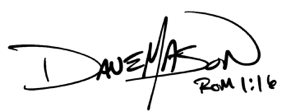 Dave Mason
Rom 1:16